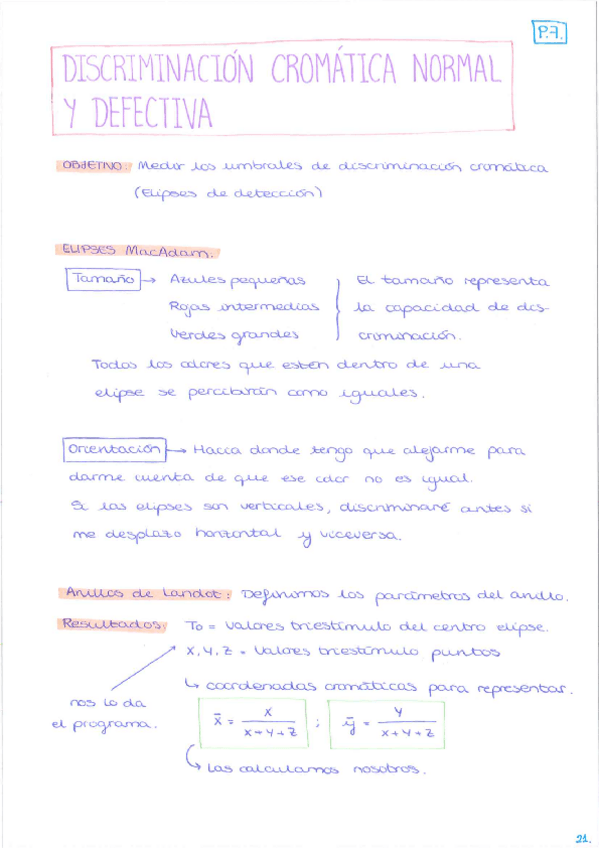 P.7.
DISCRIMINACIÓN CROMÁTICA NORMAL
Y DEFECTIVA
OBJETIVO: Medir los umbrales de discriminación cromática
(Elipses de detección)
ELIPSES MacAdam.
Tamaño → Azules pequeñas
Rojas intermedias
Verdes grandes
El tamaño representa
la capacidad de dis-
criminación.
Todos los colores que estén dentro de una
elipse se percibirán como iguales.
Orientación → Hacia donde tengo que alejarme para
darme cuenta de que ese color no es igual.
Si las elipses son verticales, discriminaré antes si
me desplazo horizontal y viceversa.
Anillos de Landot: Definimos los parámetros del anillo.
Resultados: To = Valores triestímulo del centro elipse.
X, Y, Z = Valores triestímulo puntos
↳ coordenadas cromáticas para representar.
nos lo da
el programa.
x̄ = X / (X+Y+Z) ; ȳ = Y / (X+Y+Z)
↳ Las calculamos nosotros.
21.